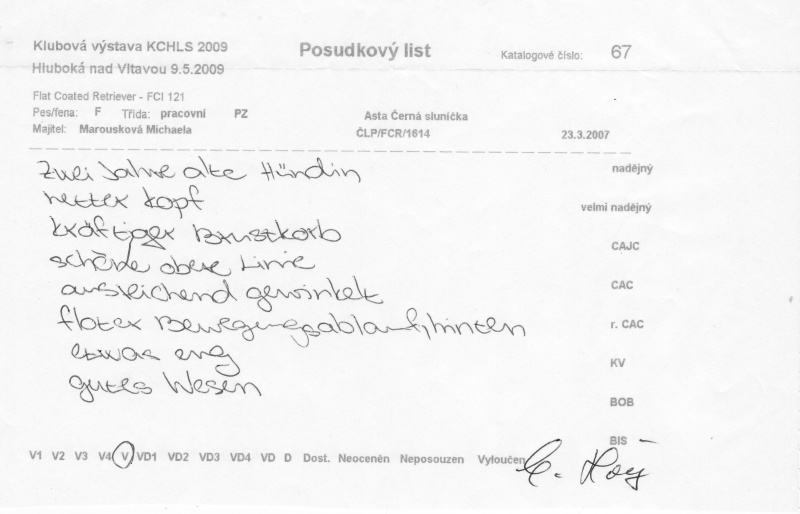 Klubová výstava KCHLS 2009 Posudkový list Katalogové číslo: 67
Hluboká nad Vltavou 9.5.2009
Flat Coated Retriever - FCI 121
Pes/fena: F Třída: pracovní PZ Asta Černá sluníčka
Majitel: Marousková Michaela ČLP/FCR/1614 23.3.2007
zwei Jahre alte Hündin nadějný
netter Kopf velmi nadějný
kräftiger Brustkorb CAJC
schöne obere Linie CAC
ausreichend gewinkelt
floter Bewegungsablauf, hinten r. CAC
etwas eng KV
gutes Wesen BOB
BIS
V1 V2 V3 V4 V VD1 VD2 VD3 VD4 VD D Dost. Neoceněn Neposouzen Vyloučen